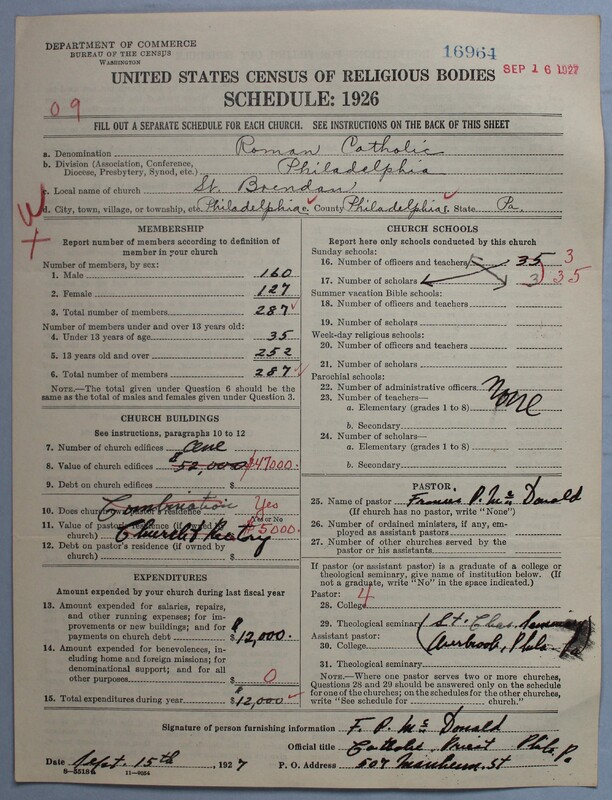 DEPARTMENT OF COMMERCE
BUREAU OF THE CENSUS
WASHINGTON
16964
SEP 16 1927
UNITED STATES CENSUS OF RELIGIOUS BODIES
SCHEDULE: 1926
09
FILL OUT A SEPARATE SCHEDULE FOR EACH CHURCH. SEE INSTRUCTIONS ON THE BACK OF THIS SHEET
a. Denomination Roman Catholic
b. Division (Association, Conference, Diocese, Presbytery, Synod, etc.) Philadelphia
c. Local name of church St. Brendan
d. City, town, village, or township, etc. Philadelphia e. County Philadelphia f. State Pa.
MEMBERSHIP
Report number of members according to definition of
member in your church
Number of members, by sex:
1. Male 160
2. Female 127
3. Total number of members 287
Number of members under and over 13 years old:
4. Under 13 years of age 35
5. 13 years old and over 252
6. Total number of members 287
NOTE.—The total given under Question 6 should be
the same as the total of males and females given under Question 3.
CHURCH BUILDINGS
See instructions, paragraphs 10 to 12
7. Number of church edifices One
8. Value of church edifices $52,000 $47000.
9. Debt on church edifices $
10. Does church own pastor's residence? Combination Yes
Yes or No
11. Value of pastor's residence (if owned by
church) Church & Rectory $5000.
12. Debt on pastor's residence (if owned by
church) $
EXPENDITURES
Amount expended by your church during last fiscal year
13. Amount expended for salaries, repairs,
and other running expenses; for im-
provements or new buildings; and for
payments on church debt $12,000.
14. Amount expended for benevolences,
including home and foreign missions; for
denominational support; and for all
other purposes $ 0
15. Total expenditures during year $12,000
CHURCH SCHOOLS
Report here only schools conducted by this church
Sunday schools:
16. Number of officers and teachers 35 3
17. Number of scholars 3 35
Summer vacation Bible schools:
18. Number of officers and teachers
19. Number of scholars
Week-day religious schools:
20. Number of officers and teachers
21. Number of scholars
Parochial schools:
22. Number of administrative officers None
23. Number of teachers—
a. Elementary (grades 1 to 8)
b. Secondary
24. Number of scholars—
a. Elementary (grades 1 to 8)
b. Secondary
PASTOR
25. Name of pastor Francis P. Mc Donald
(If church has no pastor, write "None")
26. Number of ordained ministers, if any, em-
ployed as assistant pastors
27. Number of other churches served by the
pastor or his assistants
If pastor (or assistant pastor) is a graduate of a college or
theological seminary, give name of institution below. (If
not a graduate, write "No" in the space indicated.)
Pastor: 4
28. College
29. Theological seminary St. Chas. Seminary
Assistant pastor:
30. College Overbrook, Phila. Pa
31. Theological seminary
NOTE.—Where one pastor serves two or more churches,
Questions 28 and 29 should be answered only on the schedule
for one of the churches; on schedules for the other churches,
write "See schedule for church."
Signature of person furnishing information F. P. Mc Donald
Official title Catholic Priest Phila. Pa
Date Sept. 15th, 1927 P. O. Address 507 Manheim St
8-5518a 11-9554